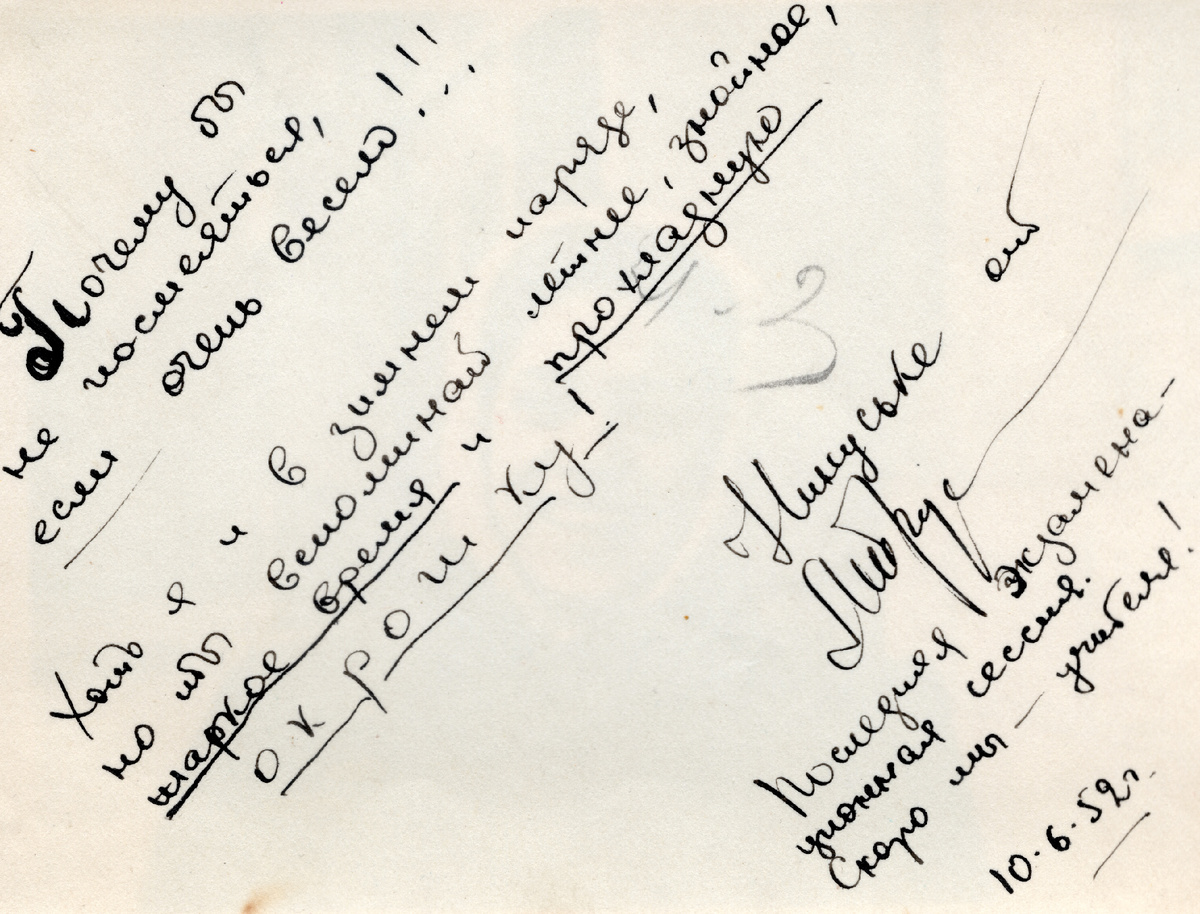 Почему бы
не посмеяться,
если очень весело!!!
Хоть я и в зимнем наряде,
но ты вспоминай летнее, знойное,
жаркое время и прохладную
окрошку!
Нинуське от
Последняя экзамена-
ционная сессия.
Скоро мы — учителя!
10.6.52г.